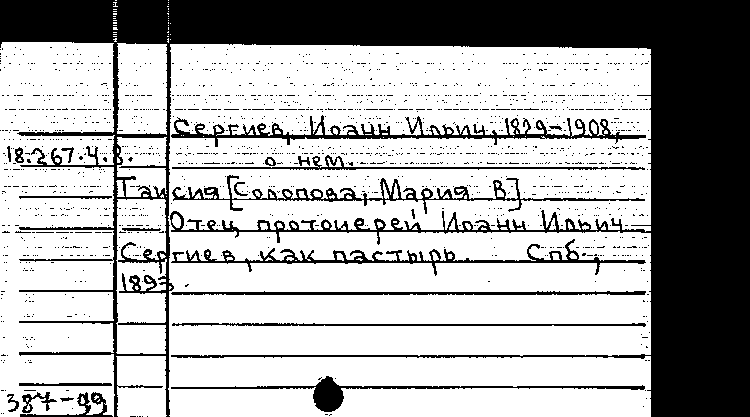 Сергиев, Иоанн Ильич, 1829-1908,
18.267.4.8. о нем.
Таисия [Солопова, Мария В]
Отец протоиерей Иоанн Ильич
Сергиев, как пастырь. Спб.,
1893.
387-99